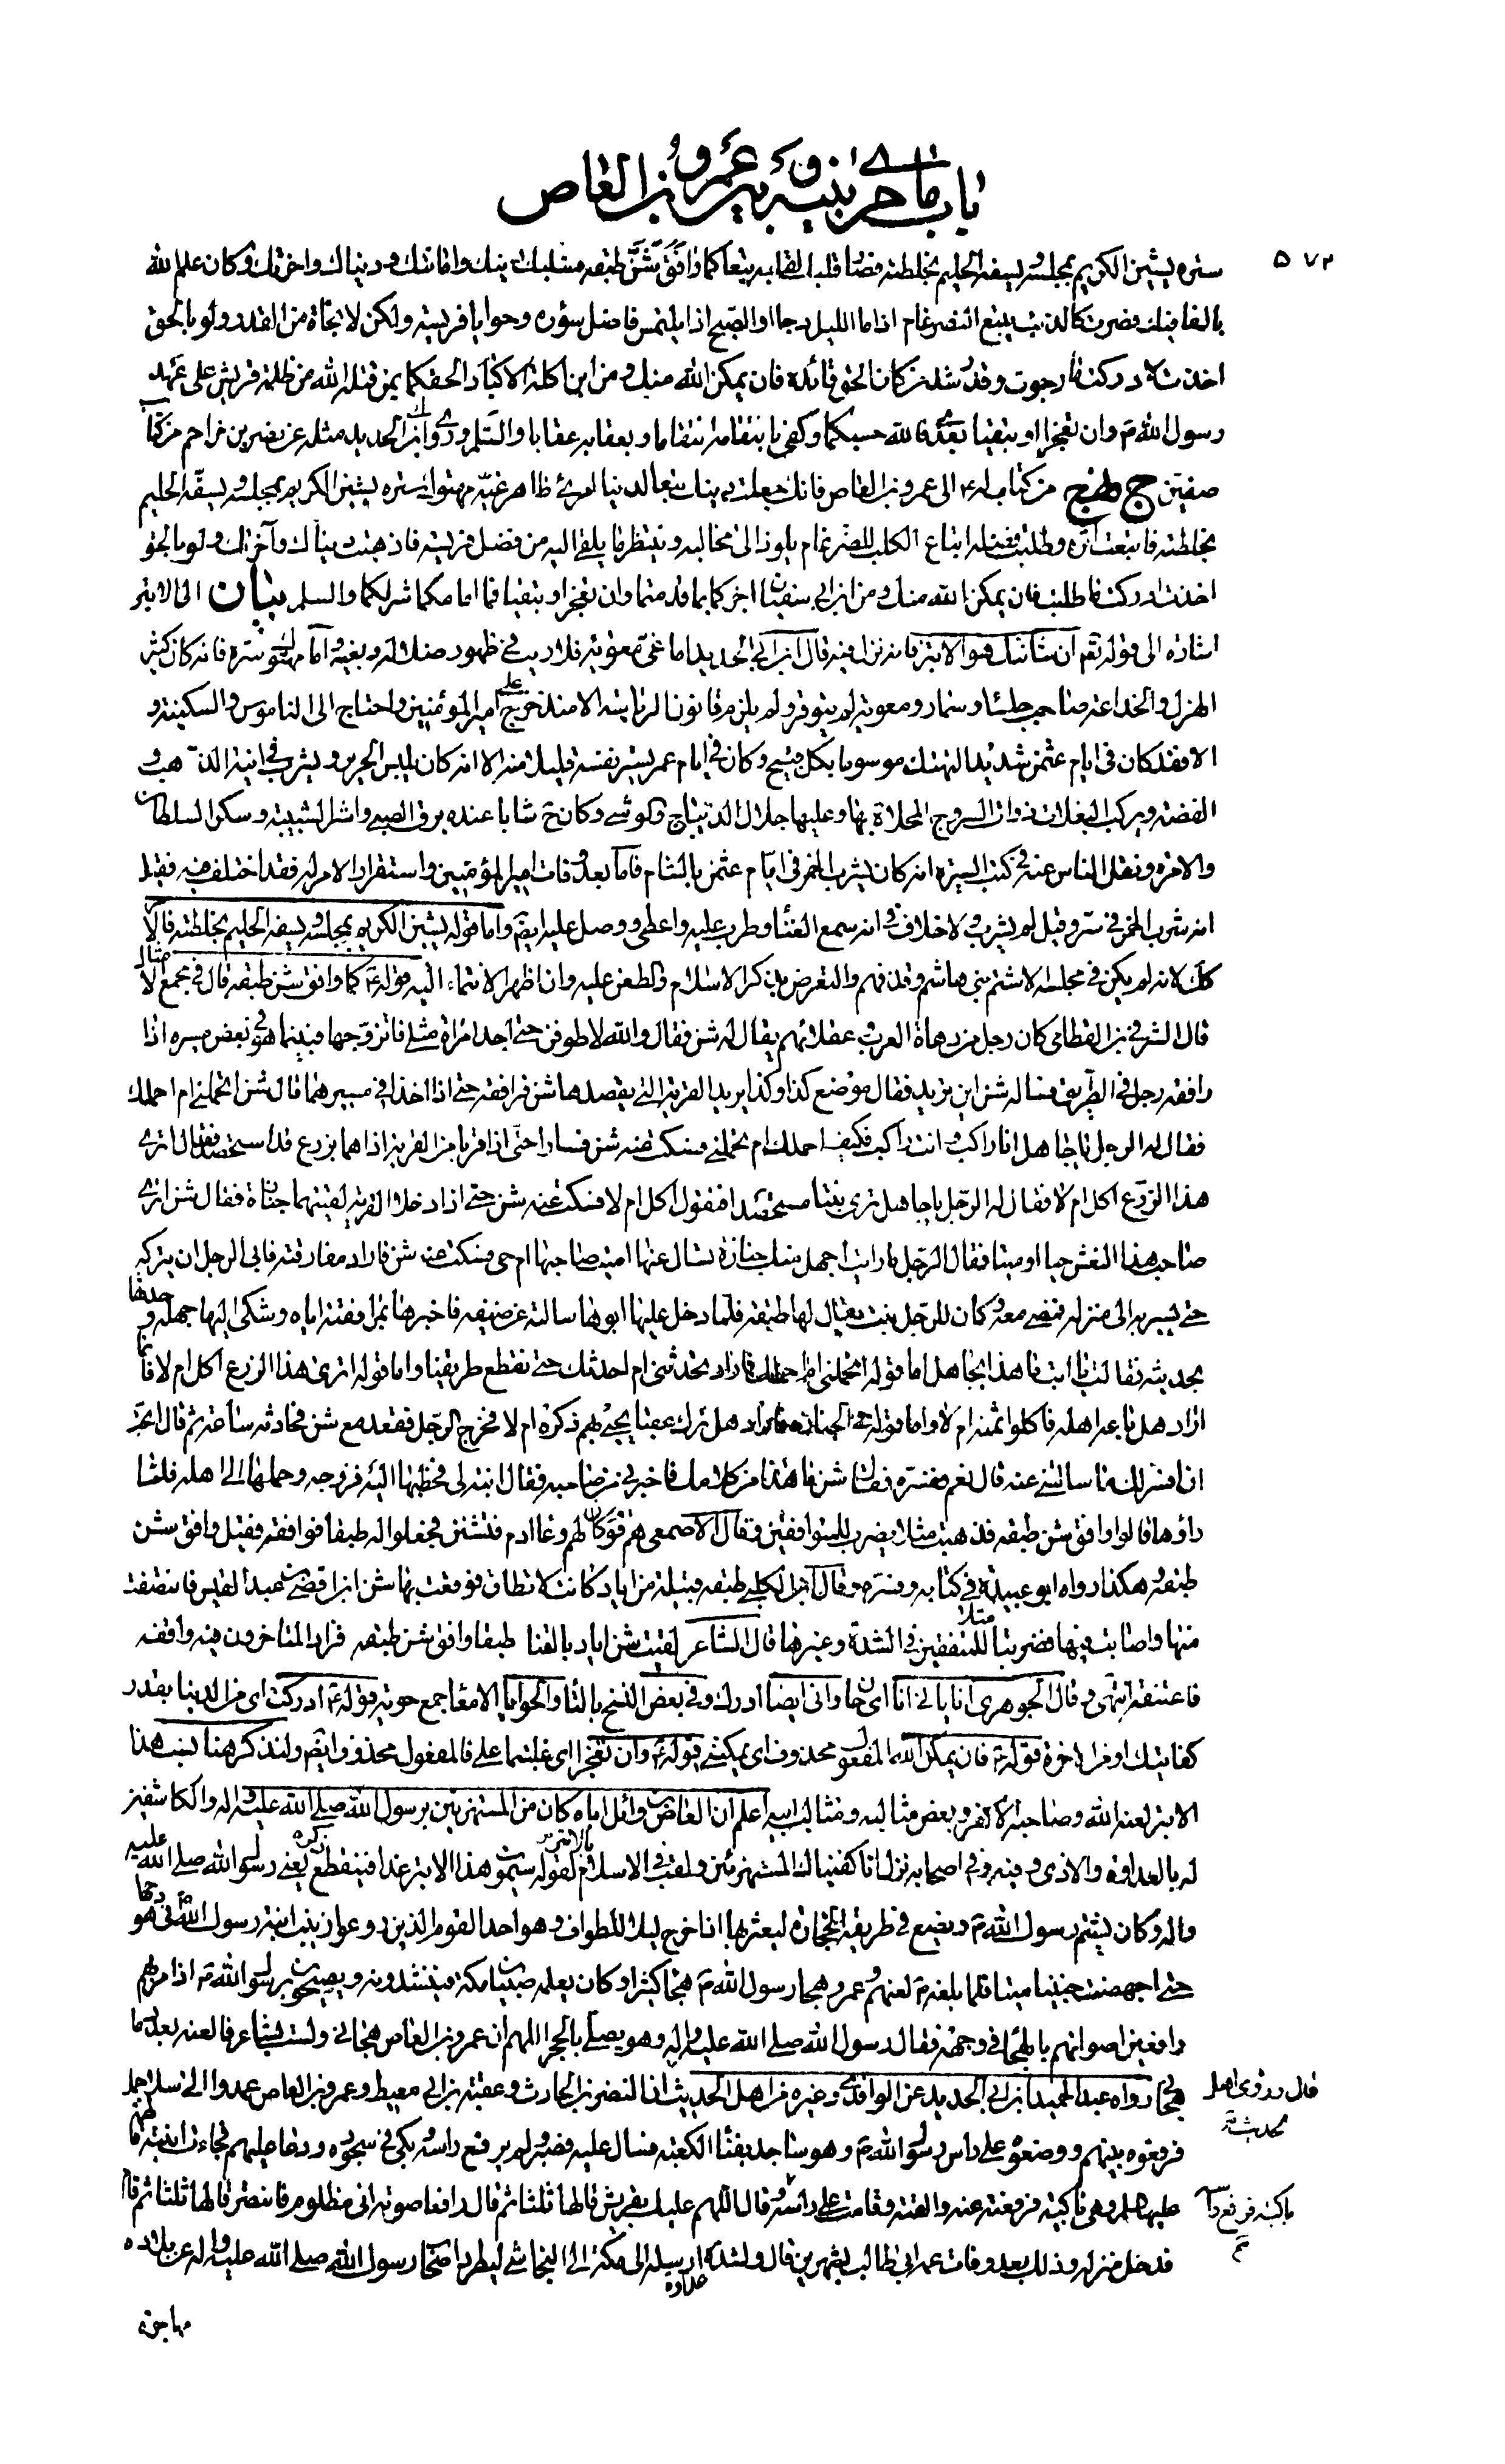 باب ما جرى بينه و بين عمرو بن العاص
٥٧٢
ستره يشين الكريم بمجلسه و يسفه الحليم بخلطته فصار قلبك لقلبه تبعا كما وافق شن طبقه فسلبك دينك و امانتك و دنياك و اخرتك و كان علم الله
بالغا فيك فصرت كالذئب يتبع الضرغام اذا ما الليل دجا او الصبح اذا يلتمس فاضل سؤره و حوايا فريسته و لكن لا نجاة من القدر و لو بالحق
اخذت لادركت ما رجوت و قد رشد من كان الحق قائده فان يمكن الله منك و من ابن اكلة الاكباد الحقكما بمن قتله الله من ظلمة قريش على عهد
رسول الله ص و ان تعجزا او تبقيا بعد فالله حسبكما و كفى بانتقامه انتقاما و بعقابه عقابا و السلم و روى ابن ابى الحديد مثله عن نصر بن مزاحم من كتاب
صفين ج نهج من كتاب له ع الى عمرو بن العاص فانك جعلت دينك تبعا لدنيا امرئ ظاهر غيه مهتوك ستره يشين الكريم بمجلسه و يسفه الحليم
بخلطته فاتبعت اثره و طلبت فضله اتباع الكلب للضرغام يلوذ الى مخالبه و ينتظر ما يلقى اليه من فضل فريسته فاذهبت دنياك و آخرتك و لو بالحق
اخذت ادركت ما طلبت فان يمكن الله منك و من ابن ابى سفيان اجزكما بما قدمتما و ان تعجزا و تبقيا فما امامكما شر لكما و السلم بيان الى الابتر
اشارة الى قوله تعم ان شانئك هو الابتر فانه نزل فيه قال ابن ابى الحديد اما غى معوية فلا ريب فى ظهور ضلاله و بغيه و اما مهتوك ستره فانه كان كثير
الهزل و الخداعة صاحب جلساء و سمار و معوية لم يتوقر و لم يلزم قانون الرياسة الا منذ خرج على امير المؤمنين و احتاج الى الناموس و السكينة و
الا فقد كان فى ايام عثمن شديد التهتك موسوما بكل قبيح و كان فى ايام عمر يستر نفسه قليلا منه الا انه كان يلبس الحرير و يشرب فى انية الذهب و
الفضة و يركب البغلات ذوات السروج المحلاة بها و عليها جلال الديباج و الوشى و كان ح شابا عنده نزق الصبى و اشر الشبيبة و سكر السلطان
و الامرة و نقل الناس عنه فى كتب السيرة انه كان يشرب الخمر فى ايام عثمن بالشام فاما بعد وفات امير المؤمنين و استقرار الامر له فقد اختلف فيه فقيل
انه شرب الخمر فى ستر و قيل لم يشرب و لا خلاف فى انه سمع الغناء و طرب عليه و اعطى و وصل عليه ايضم و اما قوله يشين الكريم بمجلسه و يسفه الحليم بخلطته فالامر
كك لانه لم يكن فى مجلسه الا شتم بنى هاشم و قذفهم و التعرض بذكر الاسلام و الطعن عليه و ان اظهر الانتماء اليه قوله ع كما وافق شن طبقه قال فى مجمع الامثال
قال الشرقى بن القطامى كان رجل من دهاة العرب و عقلائهم يقال له شن فقال و الله لاطوفن حتى اجد امراة مثلى فاتزوجها فبينما هو فى بعض مسيره اذا
رافقه رجل فى الطريق فساله شن اين تريد فقال موضع كذا و كذا يريد القرية التى يقصدها شن فرافقه حتى اذا اخذا فى مسيرهما قال شن اتحملنى ام احملك
فقال له الرجل يا جاهل انا راكب و انت راكب فكيف احملك ام تحملنى فسكت عنه شن فسارا حتى اذا قربا من القرية اذا هما بزرع قد استحصد فقال اترى
هذا الزرع اكل ام لا فقال له الرجل يا جاهل ترى نبتا مستحصدا فتقول اكل ام لا فسكت عنه شن حتى اذا دخلا القرية لقيتهما جنازة فقال شن اترى
صاحب هذا النعش حيا او ميتا فقال الرجل ما رايت اجهل منك جنازة تسال عنها اميت صاحبها ام حى فسكت عنه شن فاراد مفارقته فابى الرجل ان يتركه
حتى يسير به الى منزله فمضى معه و كان للرجل بنت يقال لها طبقه فلما دخل عليها ابوها سالته عن ضيفه فاخبرها بمرافقته اياه و شكى اليها جهله و حدثها
بحديثه فقالت يا ابت ما هذا بجاهل اما قوله اتحملنى ام احملك فاراد تحدثنى ام احدثك حتى نقطع طريقنا و اما قوله اترى هذا الزرع اكل ام لا فانما
اراد هل باعه اهله فاكلوا ثمنه ام لا و اما قوله فى الجنازة فاراد هل ترك عقبا يحيى بهم ذكره ام لا فخرج الرجل فقعد مع شن فحادثه ساعة ثم قال اتحب
ان افسر لك ما سالتنى عنه قال نعم ففسره فقال شن ما هذا من كلامك فاخبرنى من صاحبه فقال ابنة لى فخطبها اليه فزوجه و حملها الى اهله فلما
راوها قالوا وافق شن طبقه فذهبت مثلا يضرب للمتوافقين و قال الاصمعى هم قوم كان لهم وعاء ادم فتشنن فجعلوا له طبقا فوافقه فقيل وافق شن
طبقه و هكذا رواه ابو عبيدة فى كتابه و فسره و قال ابن الكلبى طبقه قبيلة من اياد كانت لا تطاق فوقعت بها شن ابن اقصى بن عبد القيس فانتصفت
منها و اصابت فيها فضربتا مثلا للمتفقين فى الشدة و غيرها قال الشاعر لقيت شن اياد بالقنا طبقا وافق شن طبقه فزاد المتاخرون فيه وافقه
فاعتنقه انتهى و قال الجوهرى انا يانى انا اى حان و انى ايضا ادرك و فى بعض النسخ بالتاء و الحوايا الامعاء جمع حوية قوله ع ادركت اى من الدنيا بقدر
كفايتك او من الاخرة قوله ع فان يمكن الله المفعول محذوف اى يمكننى قوله ع و ان تعجزا اى غلبتما على فالمفعول محذوف ايضم و لنذكر هنا نسب هذا
الابتر لعنه الله و صاحبه الاكفر و بعض مثالبه و مثالب ابيه اعلم ان العاص بن وائل اباه كان من المستهزئين برسول الله صلى الله عليه و اله و الكاشفين
له بالعداوة و الاذى و فيه و فى اصحابه نزل انا كفيناك المستهزئين و لقب فى الاسلام بالابتر لقوله سيموت هذا الابتر غدا فينقطع ذكره يعنى رسول الله صلى الله عليه
و اله و كان يشتم رسول الله ص و يضع فى طريقه الحجارة ليعثر بها اذا خرج ليلا للطواف و هو احد القوم الذين روعوا زينب ابنة رسول الله ص فى هودجها
حتى اجهضت جنينا ميتا فلما بلغه ص لعنهم و عمرو هجا رسول الله ص هجاء كثيرا و كان يعلمه صبيان مكة فينشدونه و يصيحون برسول الله ص اذا مر بهم
رافعين اصواتهم بالهجاء فى وجهه فقال رسول الله صلى الله عليه و اله و هو يصلى بالحجر اللهم ان عمرو بن العاص هجانى و لست بشاعر فالعنه بعدد ما
هجانى رواه عبد الحميد ابن ابى الحديد عن الواقدى و غيره من اهل الحديث ان النضر بن الحارث و عقبة بن ابى معيط و عمرو بن العاص عمدوا الى سلا جمل
قال و روى اهل
الحديث
فرفعوه بينهم و وضعوه على راس رسول الله ص و هو ساجد بفناء الكعبة فسال عليه فصبر و لم يرفع راسه و بكى فى سجوده و دعا عليهم فجاءت ابنته فاطمة
عليها السلم و هى باكية فرفعته عنه و القته و قامت على راسه و قال اللهم عليك بقريش قالها ثلثا ثم قال رافعا صوته انى مظلوم فانتصر قالها ثلثا ثم قام
باكية فرفع
فدخل منزله و ذلك بعد وفات عمه ابى طالب بشهرين قال و لشدة عداوة ارسله الى مكة الى النجاشى ليطرد اصحاب رسول الله صلى الله عليه و اله عن بلاده
مهاجرة